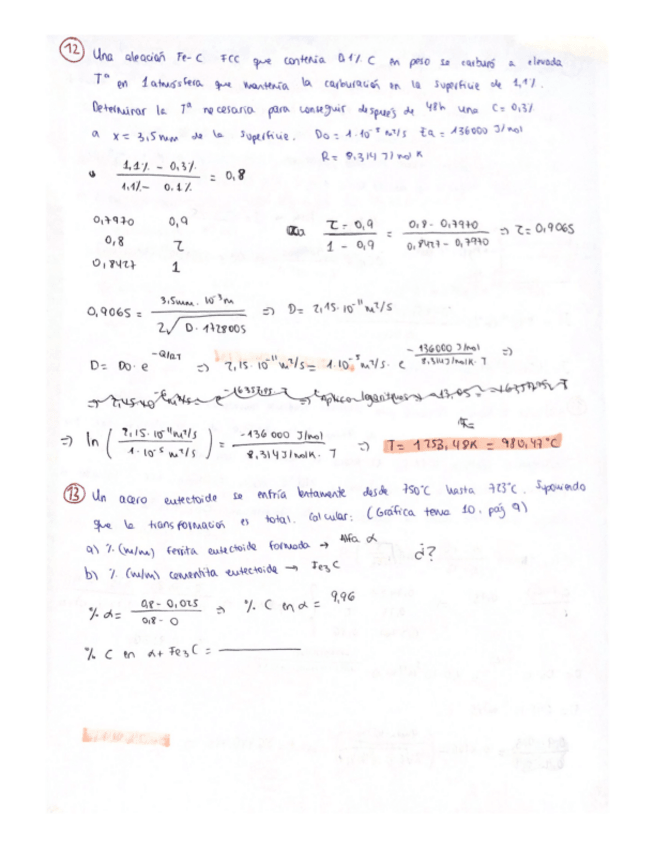 12 Una aleación Fe-C FCC que contenía 0.1% C en peso se carburó a elevada
Tª en 1 atmósfera que mantenía la carburación en la superficie de 1,1%.
Determinar la Tª necesaria para conseguir después de 48h una C = 0,3%
a x = 3,5mm de la superficie. D0 = 1·10⁻⁵ m²/s Ea = 136000 J/mol
R = 8.314 J/mol K
(1,1% - 0,3%) / (1.1% - 0.1%) = 0,8
0,7970 0,9
0,8 z
0,8427 1
(z - 0,9) / (1 - 0,9) = (0,8 - 0,7970) / (0,8427 - 0,7970) => z = 0,9065
0,9065 = (3,5mm. 10⁻³m) / (2√(D · 1728005)) => D = 2,15·10⁻¹¹ m²/s
D = D0·e^(-Q/RT) => 2,15·10⁻¹¹ m²/s = 1·10⁻⁵ m²/s · e^(-136000 J/mol / 8,314 J/molK · T) =>
=> ln (2,15·10⁻¹¹ m²/s / 1·10⁻⁵ m²/s) = (-136 000 J/mol) / (8,314 J/molK. T) => T = 1253,48K = 980,47°C
13 Un acero eutectoide se enfría lentamente desde 750°C hasta 723°C. Suponiendo
que la transformación es total. Calcular: (Gráfica tema 10. pág 9)
a) % (m/m) ferrita eutectoide formada → Alfa α
¿?
b) % (m/m) cementita eutectoide → Fe3C
% α = (0,8 - 0,025) / (0,8 - 0) => % C en α = 9,96
% C en α + Fe3C =